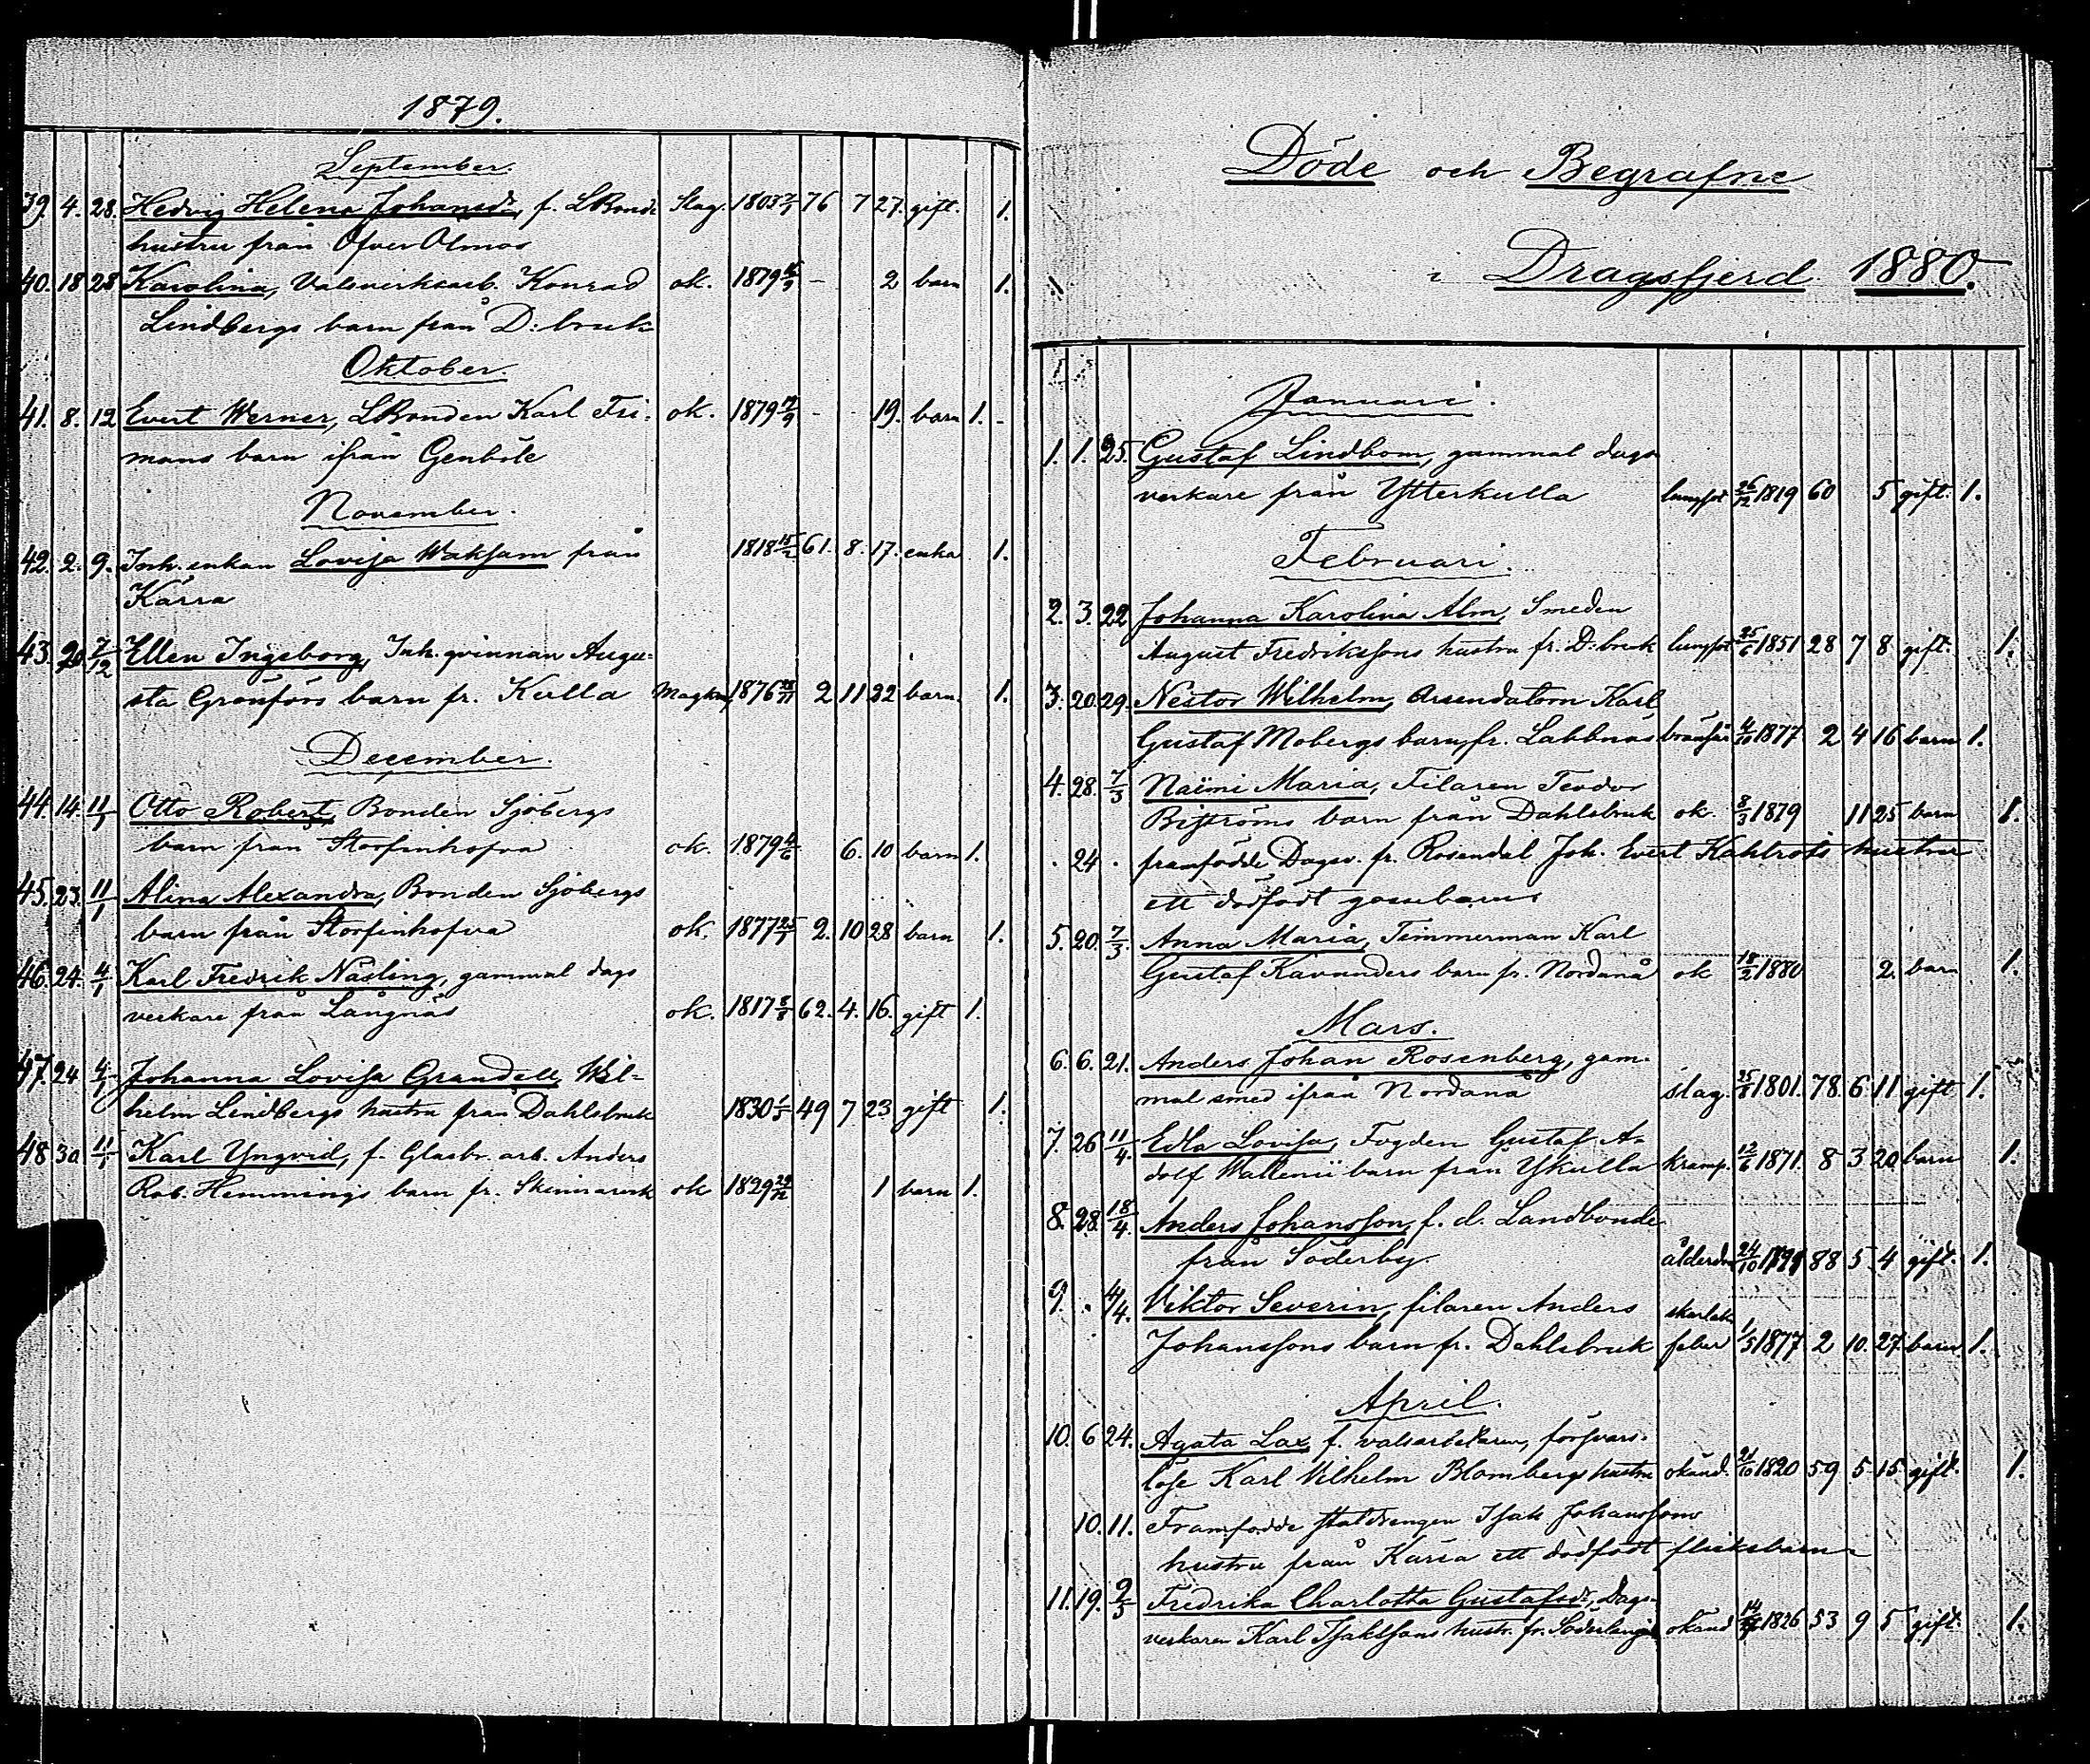 1879.
September.
39. 4. 28. Hedvig Helena Johansdr, f. LBonde Slag. 1803 76 7 27. gift. 1.
hustru från Öfver Ölmos
40. 18 28 Karolina, Valsverksarb. Konrad ok. 1879 - 2 barn 1.
Lindbergs barn från D:bruk
Oktober.
41. 8. 12 Evert Werner, LBonden Karl Fri- ok. 1879 17/9 - - 19. barn 1. -
mans barn ifrån Genböle
November.
42. 2. 9. Inh. enkan Lovisa Waksam från 1818 61. 8. 17. enka 1.
Kärra
43. 20 7/12 Ellen Ingeborg, Inh. qvinnan Augu-
sta Grönfors barn fr. Kulla 1876 2 11 22 barn. 1.
December.
44. 14. 11/1 Otto Robert, Bonden Sjöbergs
barn från Storfinhofva ok. 1879 4/6 6. 10 barn 1.
45. 23. 11/1 Alina Alexandra, Bonden Sjöbergs
barn från Storfinhofva ok. 1877 25/1 2. 10 28 barn 1.
46. 24. 4/1 Karl Fredrik Näsling, gammal dags
verkare från Långnäs ok. 1817 8/8 62. 4. 16. gift 1.
47. 24. 4/1 Johanna Lovisa Grandell, Wil-
helm Lindbergs hustru från Dahlsbruk 1830 1/5 49 7 23 gift 1.
48 30. 11/1 Karl Yngvid, f. Glasbr. arb. Anders
Rob. Hemmings barn fr. Skinnarvik ok 1829 29/12 1 barn 1.
Döde och Begrafne
i Dragsfjerd 1880.
Januari.
1. 1. 25. Gustaf Lindbom, gammal dags
verkare från Ytterkulla lungsot 26/12 1819 60 5 gift. 1.
Februari.
2. 3. 22 Johanna Karolina Alm, Smeden
August Fredrikssons hustru fr. D:bruk lungsot 25/6 1851 28 7 8 gift. 1.
3. 20. 29. Nestor Wilhelm, Arrendatorn Karl
Gustaf Mobergs barn fr. Labbnäs 4/10 1877 2 4 16 barn 1.
4. 28. 7/3 Naëmi Maria, Filaren Teodor
Biströms barn från Dahlsbruk ok. 8/3 1879 11 25 barn 1.
. 24 . framfödde Dagsv. fr. Rosendal Joh. Evert Kahlrots hustru
ett dödfödt gossebarn
5. 20. 7/3. Anna Maria, Timmerman Karl
Gustaf Kavanders barn fr. Nordanå ok 18/2 1880 2. barn 1.
Mars.
6. 6. 21. Anders Johan Rosenberg, gam-
mal smed ifrån Nordanå slag. 25/8 1801. 78. 6 11 gift 1.
7. 26 11/4. Edla Lovisa, Fogden Gustaf A-
dolf Wallenii barn från Ykulla kramp. 12/6 1871. 8 3 20 barn 1.
8. 28. 18/4. Anders Johansson, f. d. Landbonde
från Söderby. ålderdom 24/10 88 5 4 gift. 1.
9. . 4/4. Viktor Severin, filaren Anders skarlak
Johanssons barn fr. Dahlsbruk feber 1/5 1877 2 10. 27. barn 1.
April.
10. 6 24. Agata Lax, f. valsarbetaren, försvars-
löse Karl Vilhelm Blombergs hustru okänd. 21/10 1820 59 5 15 gift. 1.
10. 11. Framfödde Isak Johanssons
hustru från Kärra ett dödfödt flickebarn
11. 19. 9/5 Fredrika Charlotta Gustafsdr, Dags-
verkaren Karl Isakssons hustr. fr. okänd 1826 53 9 5 gift. 1.